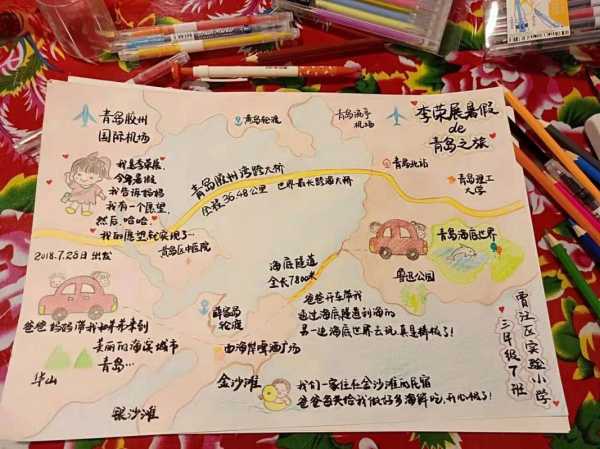 青岛胶州
国际机场
青岛轮渡
青岛流亭
机场
李荣展暑假
de
青岛之旅
我是李荣展,
今年暑假
我告诉妈妈
我有一个愿望,
然后,哈哈,
我的愿望就实现了~
青岛胶州湾跨大桥
全程36.48公里 世界最长跨海大桥
青岛北站
青岛理工
大学
青岛海底世界
2018.7.25日出发
海底隧道
全长7800米
鲁迅公园
爸爸妈妈带我和弟弟来到
美丽的海滨城市
青岛…
华山
薛家岛
轮渡
西海岸啤酒广场
爸爸开车带我
通过海底隧道到海的
另一边海底世界去玩,真是棒极了!
金沙滩
银沙滩
我们一家住在金沙滩的民宿
爸爸每天给我做好多海鲜吃,开心极了!
曹江区实验小学
三年级7班